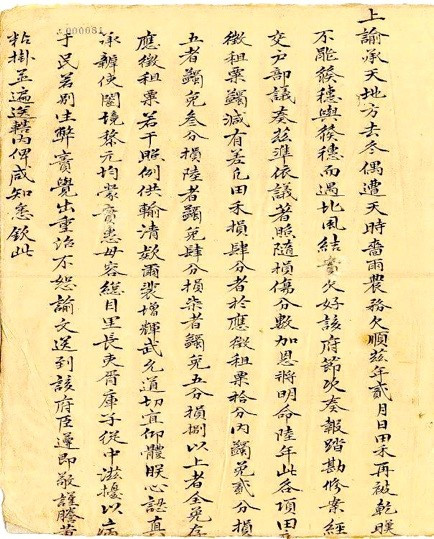 上諭承天地方去冬偶遭天時嗇雨農務欠順茲年貳月日田禾再被乾暵
不能發穗與發穗而遇北風結實欠好該府節次奏報踏勘修案經
交戶部議奏茲準依議著照隨損傷分數加恩將明命陸年此各項田
徵租粟蠲減有差凡田禾損肆分者於應徵租粟拾分內蠲免貳分損
五者蠲免叄分損陸者蠲免肆分損柒者蠲免五分損捌以上者全免存
應徵租粟若干照例供輸清款爾裴增輝武允道切宜仰體朕心認真
承辦使闔境黎元均蒙實惠毋容總目里長吏胥庫子從中滋擾以病
于民若別生弊竇覺出重治不恕諭文送到該府臣遵即敬謹謄黃
粘掛並遍送轄內俾咸知悉欽此